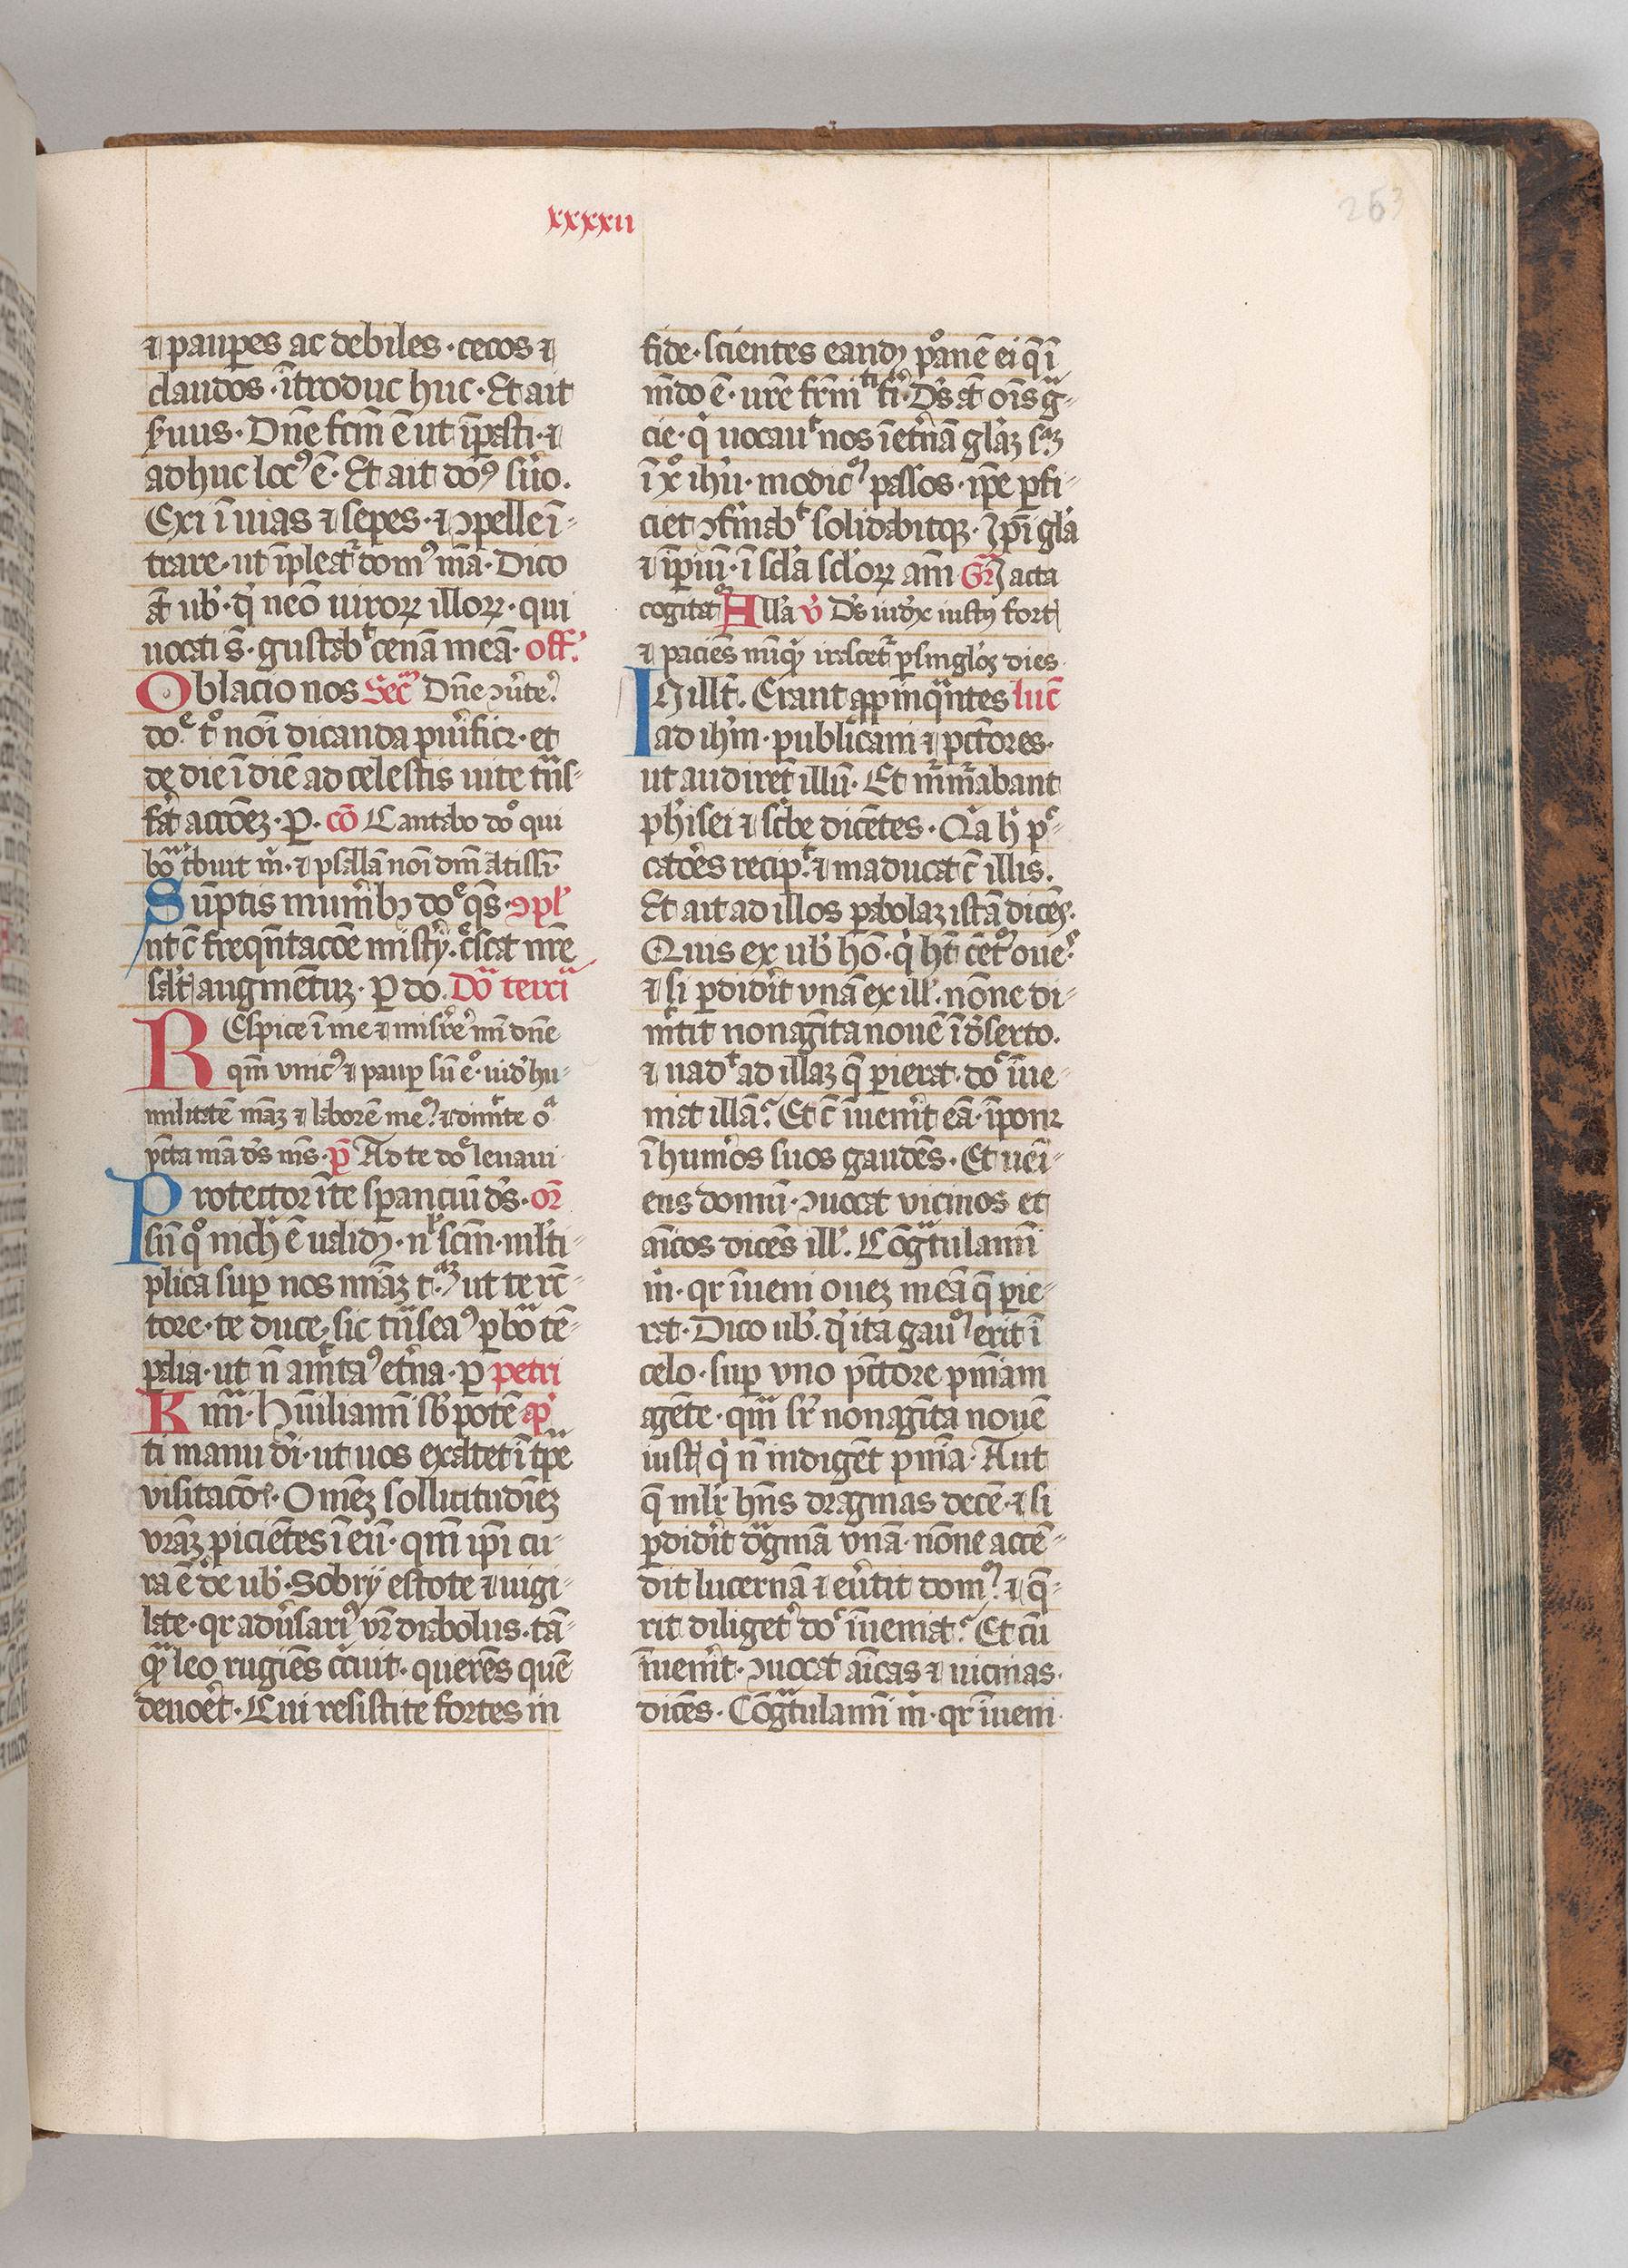 xxxxii
263
⁊ paup̄es ac debiles · cecos ⁊
claudos · ītroduc huc · Et ait
ẜuus · Dn̄e fcm̄ ē ut īpasti · ⁊
adhuc locꝰ ē · Et ait dōꝰ sůo ·
Exi ī uias ⁊ sepes · ⁊ ꝯpelle ī-
trare · ut īpleat̉ domꝰ mā · Dico
at̄ ub̉ · q̉ nēo uiroꝝ illoꝝ · qui
uocati s̄ · gustabt cenā meā · off̉
Oblacio nos Sec̉ Dn̄e ꝯůte
doe tº noi̅ dicanda puȓficꝫ · et
de die ī diē ad celestis uite tn̄s-
fat̉ accōeꝫ · P · cō Cantabo doº qui
boa tbuit m̉ · ⁊ psallā noi̅ dm̄ altissi̅
Sūptis mun̉ibꝫ doe q̄s · ꝯpl̉
ut c̄ freqn̄tacōe mistỷ · cscat nr̄e
salt̉ augmentuꝫ · P do · Doa terciā
REspice ī me ⁊ misr̉e mī dn̄e
qm̄ vnicꝰ ⁊ paup̄ sū eº · uid̉ hu-
militatē māꝫ ⁊ laborē meꝰ ⁊ dimȋte oa
pcc̄ta mā ds̉ ms̄ · p̄ Ad te doe leuaui
Protector ī te sp̄anciū ds̉ · or̄
sn̄ qº nich̉ ē ualidꝫ · nl scm̄ · ml̉ti-
plica sup̄ nos mīaꝫ taꝫ ut te rc̄-
tore · te duce · sic tn̄seaꝰ p̄ boa tē-
p̄alia · ut n̄ amȋtaꝰ et̉na · P petri
Kmi · Hūiliamī sb̉ potē ap̉
ti manu dī · ut uos exaltet ī tpe
visitacōs · Omēꝫ sollicitudiēꝫ
vrāꝫ p̄icientes ī eū · qm̄ ip̄i cu-
ra ē de ub̉ · Sobrij estote ⁊ uigi-
late · qr adůsariꝰ vr̄ diabolus · tā-
qᷓ leo rugiēs cc̉uit · querēs quē
deuoȓet · Cui resistite fortes in
fide · scientes eandꝫ pºanē ei q̄ ī
mn̄do ē · ur̄e fr̄nitti fiꝰ · Ds̉ at̄ oīs gᷓ-
cie · q̉ uocauꝉ nos ī et̉nā gl̉aꝫ saꝫ
ī xº ihů · modicꝰ passos · ip̄e p̄fi-
ciet ꝯfȋmabt solidabitqꝫ · Ip̄i gl̉a
⁊ īpiū · ī scl̉a scl̉oꝝ am̄ Gr̄ Iacta
cogitatꝰ All̉a v̉ Ds̉ iud̉x iustꝰ fort̉
⁊ paciēs nūqᷓ irascet̉ p̄ singl̉os dies
IN ill̉t · Erant app̄inqn̄tes luc̄
ad ihm̄ · publicani ⁊ pcc̄tores ·
ut audirēt illū · Et mr̉mr̉abant
ph̉isei ⁊ scbe dicētes · Qa h̉ pc-
catoȓes recip̄t · ⁊ māducat c̄ illis ·
Et ait ad illos p̄abolaꝫ istā dicēs ·
Quis ex ub̉ hō · q̉ ht̄ cētū oues
⁊ si p̄did̉it vnā ex ill̉ · nōne di-
mȋtit nonagīta nouē ī d̉serto ·
⁊ uadt ad illaꝫ q̄ p̄ierat · doc īue-
niat illā · Et c̄ īuen̉it eā · īponꝫ
ī hum̉os suos gaudēs · Et uēi-
ens domū · ꝯuocat vicinos et
aīcos dicēs ill̉ · Cōgᷓtulamī
m̉ · qr īueni oueꝫ meā q̄ p̄ie-
rat · Dico ub̉ · q̉ ita gauꝰ erit ī
celo · sup̄ vno pcc̄tore pn̄iam
agēte · qm̄ sr̉ nonagīta nouē
iust̉ q̉ n̄ indigēt pn̄ia · Aut
q̄ ml̉r hn̄s dragmas decē · ⁊ si
p̄did̉it dᷓgmā vnā · nōne accē-
dit lucernā ⁊ eůtit domꝰ · ⁊ q̄-
rit diligētꝰ doc īueniat · Et cū
īuen̉it · ꝯuocat aīcas ⁊ uicinas ·
dicēs · Cōgᷓtulamī m̉ · qr īueni